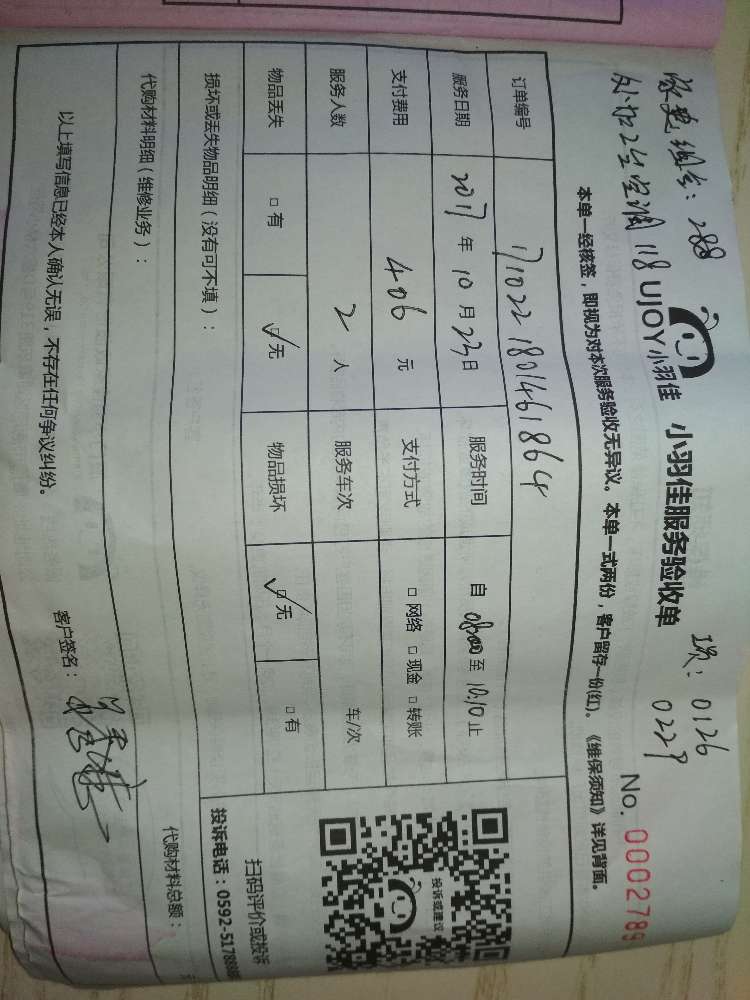 家电组合：288
外加2台空调118
UJOY小羽佳
小羽佳服务验收单
工号：0126
0229
No. 0002789
本单一经核签，即视为对本次服务验收无异议。本单一式两份，客户留存一份(红)。《维保须知》详见背面。
订单编号 1710221801461864
服务日期 2017 年 10 月 23 日 服务时间 自 08:00 至 10:10 止
支付费用 406 元 支付方式 □ 网络 □ 现金 □ 转账
服务人数 2 人 服务车次 车/次
物品丢失 □ 有 ☑ 无 物品损坏 ☑ 无 □ 有
损坏或丢失物品明细（没有可不填）：
代购材料明细（维修业务）：
代购材料总额：
以上填写信息已经本人确认无误，不存在任何争议纠纷。
客户签名：
投诉或建议
扫码评价或投诉
投诉电话：0592-5178888